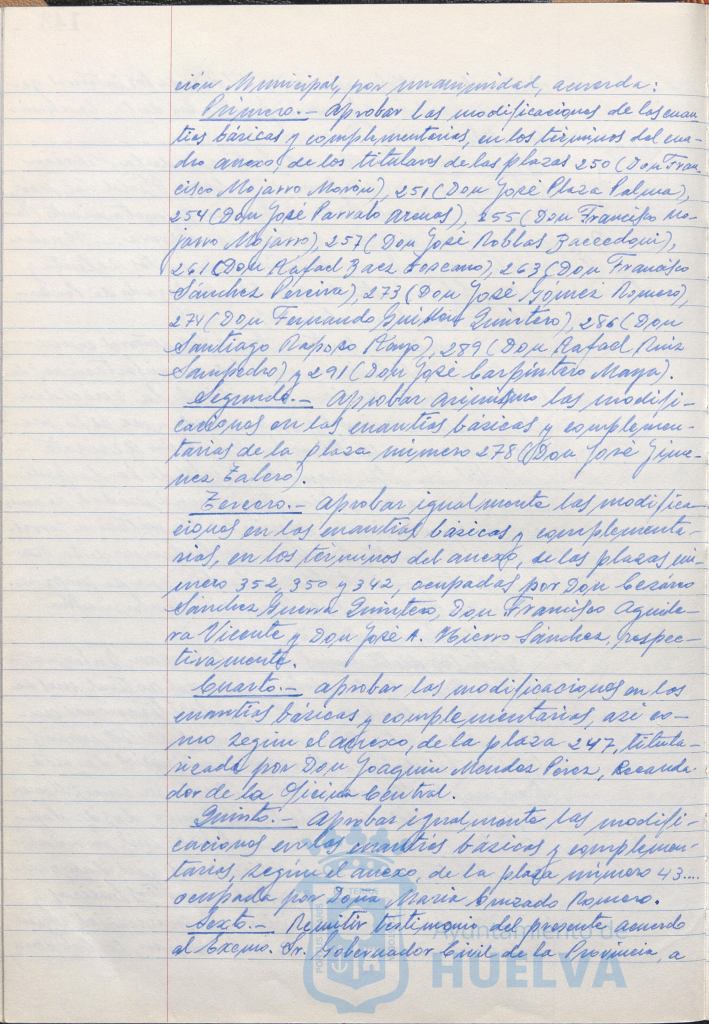 ción Municipal, por unanimidad, acuerda:
Primero.- Aprobar las modificaciones de las cuan-
tías básicas y complementarias, en los términos del cua-
dro anexo, de los titulares de las plazas 250 (Don Fran-
cisco Mojarro Morón), 251 (Don José Plaza Palma),
254 (Don José Parralo Arenas), 255 (Don Francisco Mo-
jarro Mojarro), 257 (Don José Robles
261 (Don Rafael Baez Toscano), 263 (Don Francisco
Sánchez Pereira), 273 (Don José Gómez Romero),
274 (Don Fernando Quintero), 286 (Don
Santiago Raposo Rayo), 289 (Don Rafael Ruiz
Sampedro) y 291 (Don José Carpintero Maya).
Segundo.- Aprobar asimismo las modifi-
caciones en las cuantías básicas y complemen-
tarias de la plaza número 278 (Don José Jimé-
nez Zalero).
Tercero.- Aprobar igualmente las modifica-
ciones en las cuantías básicas y complementa-
rias, en los términos del anexo, de las plazas nú-
mero 352, 350 y 342, ocupadas por Don Cezáreo
Sánchez Guerra Quintero, Don Francisco Aguile-
ra Vicente y Don José A. Hierro Sánchez, respec-
tivamente.
Cuarto.- Aprobar las modificaciones en las
cuantías básicas y complementarias, así co-
mo según el anexo, de la plaza 247, titula-
rizada por Don Joaquín Mendez Pérez, Recauda-
dor de la Oficina Central.
Quinto.- Aprobar igualmente las modifi-
caciones en las cuantías básicas y complemen-
tarias, según el anexo, de la plaza número 43....
ocupada por Doña María Cruzado Romero.
Sexto.- Remitir testimonio del presente acuerdo
al Excmo. Sr. Gobernador Civil de la Provincia, a
Ayuntamiento de
HUELVA